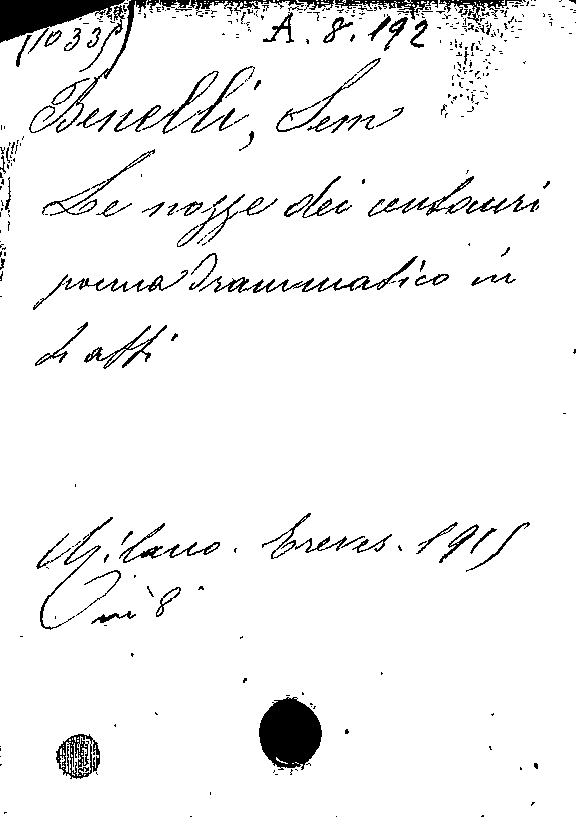 (10335)
A. 8. 192
Benelli, Sem
Le nozze dei centauri
poema drammatico in
4 atti
Milano. Treves. 1915
in 8°